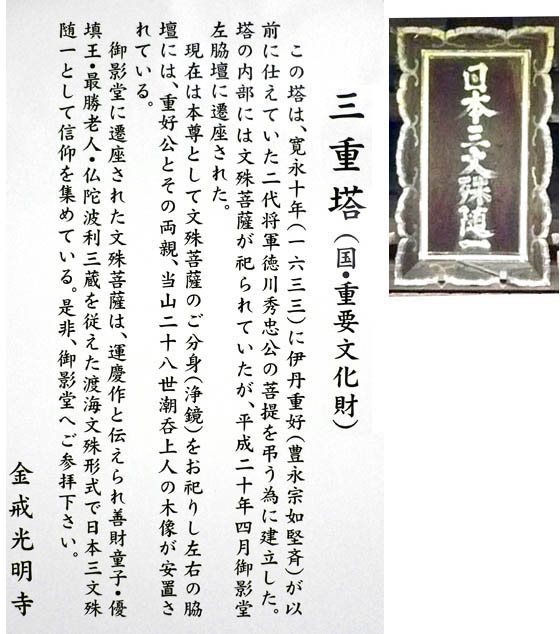 三重塔(国・重要文化財)
この塔は、寛永十年(一六三三)に伊丹重好(豊永宗如堅斉)が以
前に仕えていた二代将軍徳川秀忠公の菩提を弔う為に建立した。
塔の内部には文殊菩薩が祀られていたが、平成二十年四月御影堂
左脇壇に遷座された。
現在は本尊として文殊菩薩のご分身(浄鏡)をお祀りし左右の脇
壇には、重好公とその両親、当山二十八世潮呑上人の木像が安置さ
れている。
御影堂に遷座された文殊菩薩は、運慶作と伝えられ善財童子・優
填王・最勝老人・仏陀波利三蔵を従えた渡海文殊形式で日本三文殊
随一として信仰を集めている。是非、御影堂へご参拝下さい。
金戒光明寺
日本三文殊随一